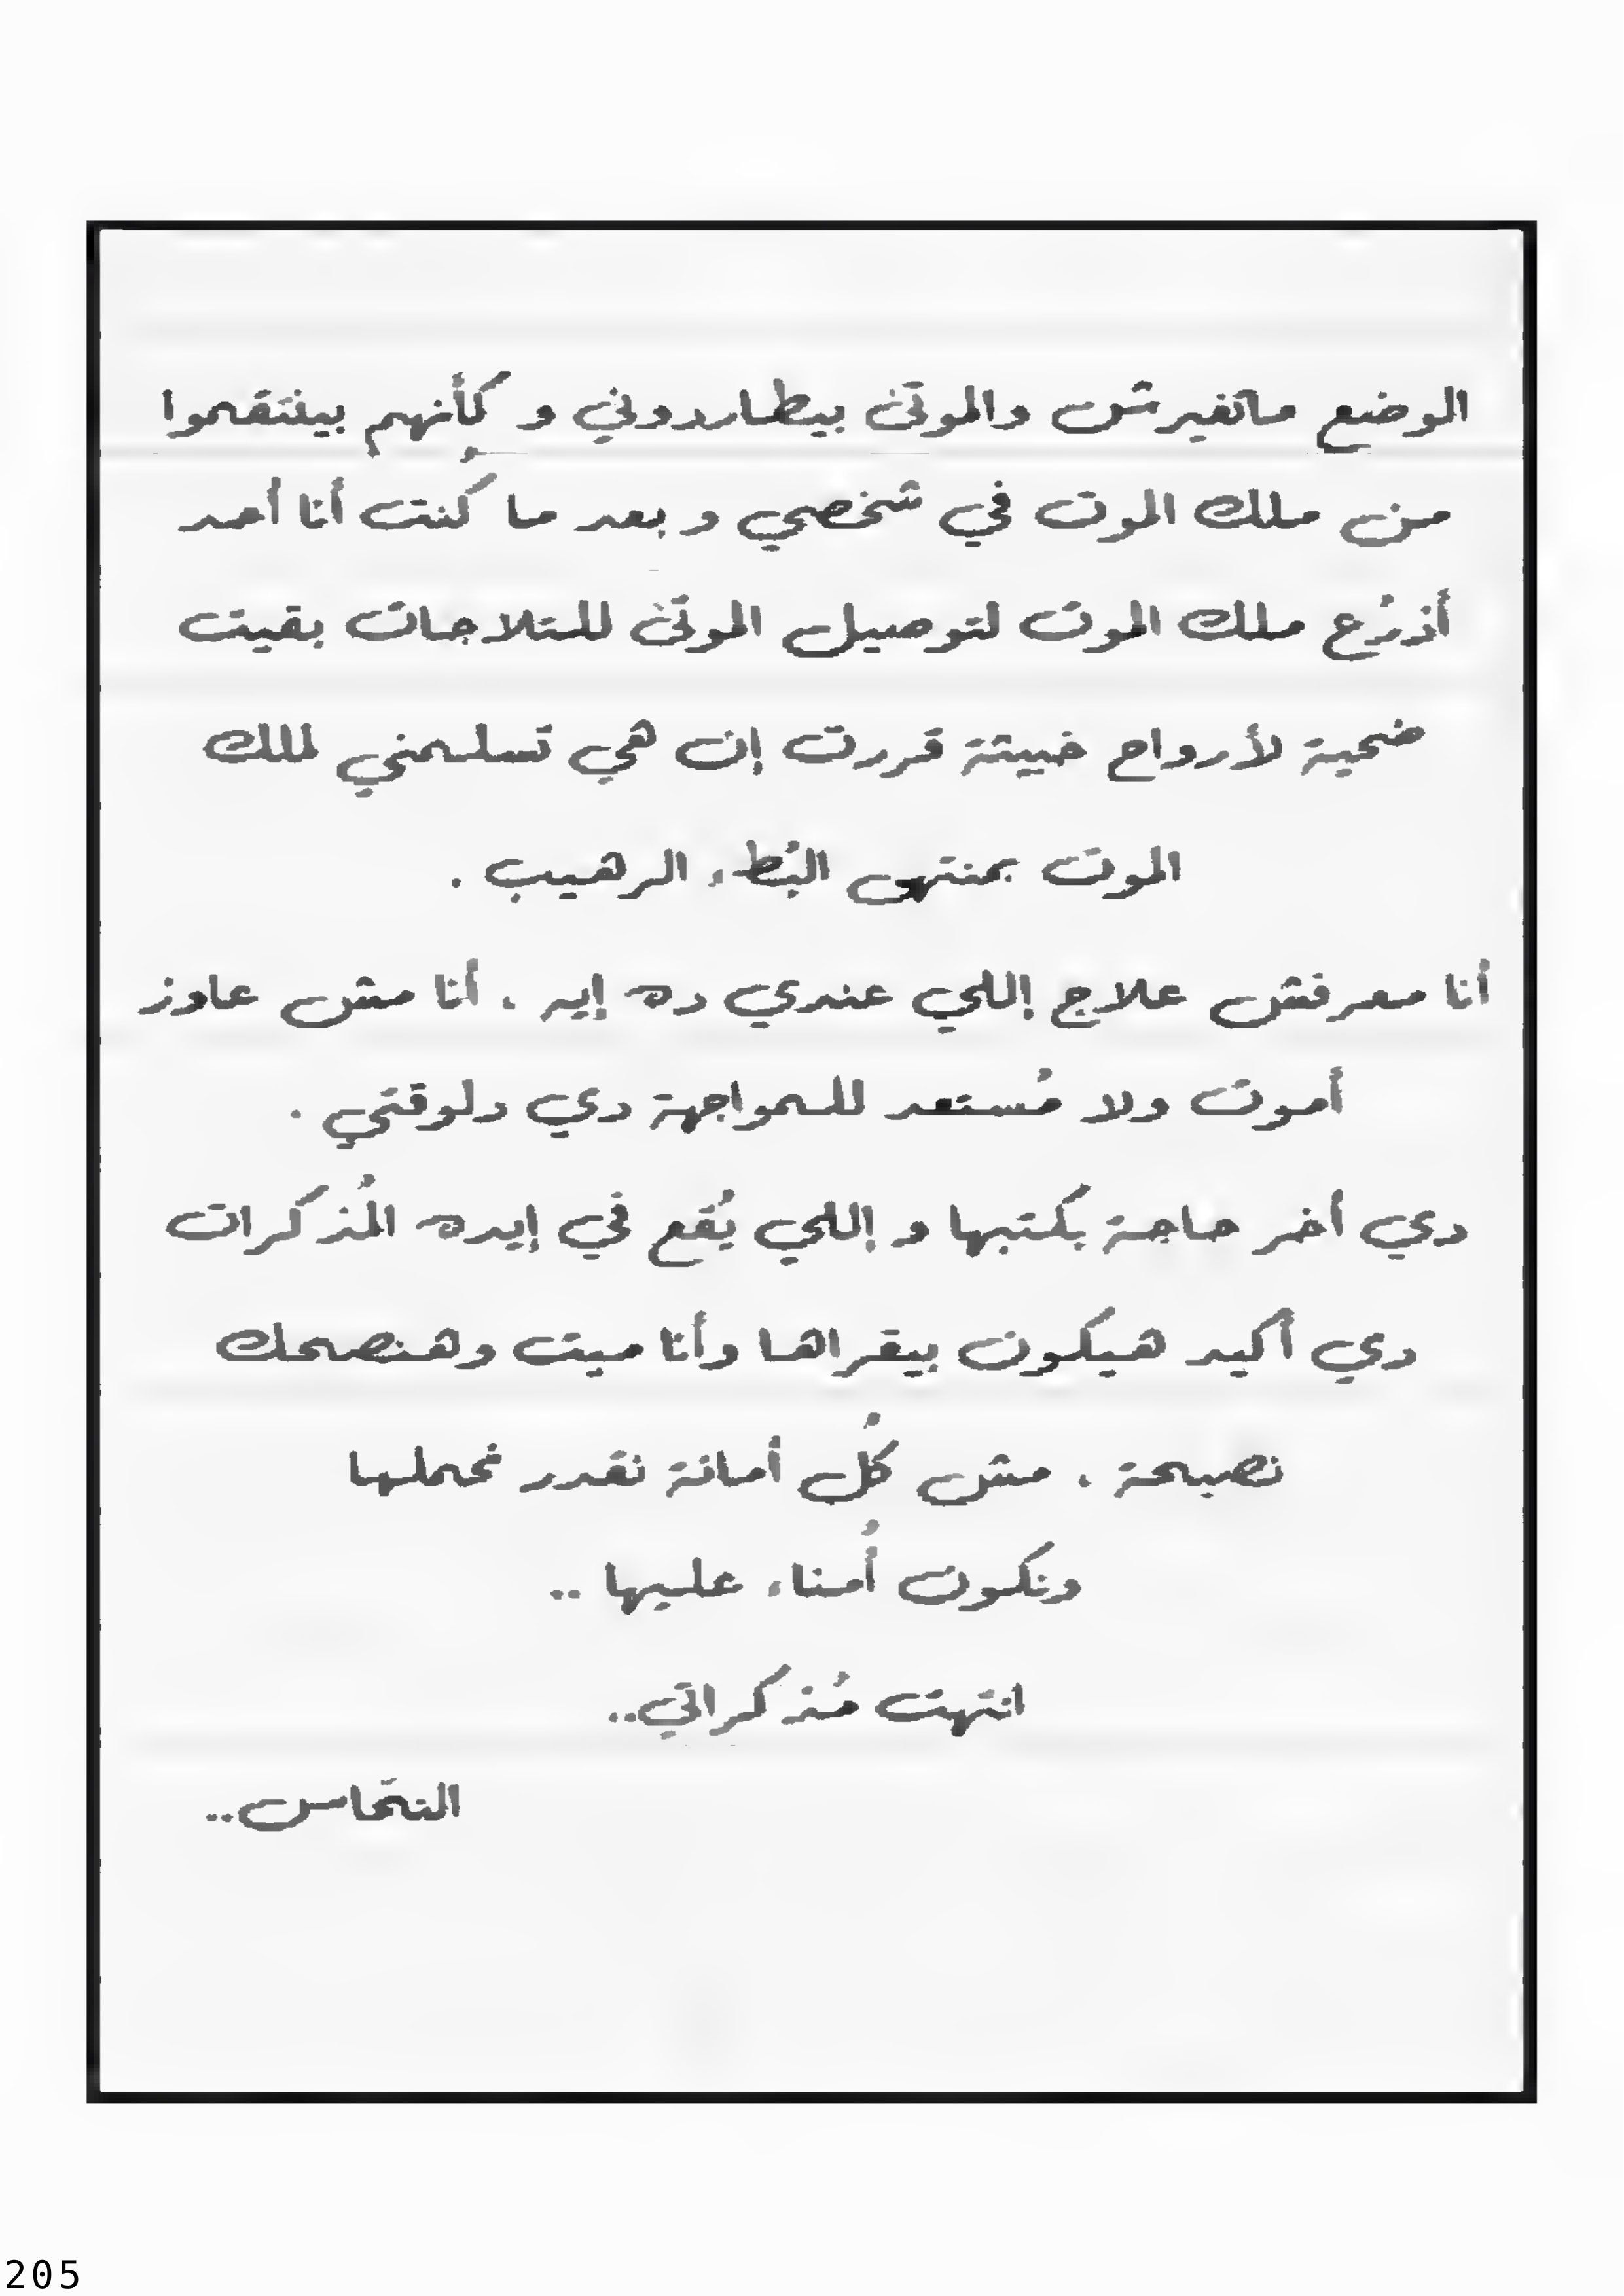 الوضع ماتغيرش والموتى بيطاردوني و كأنهم بينتقموا
من ملك الموت في شخصي و بعد ما كُنت أنا أحد
أذرُع ملك الموت لتوصيل الموتى للتلاجات بقيت
ضحية لأرواح خبيثة قررت إن هي تسلمني لملك
الموت بمنتهى البُطء الرهيب .
أنا معرفش علاج إللي عندي ده إيه ، أنا مش عاوز
أموت ولا مُستعد للمواجهة دي دلوقتي .
دي أخر حاجة بكتبها و إللي يُقع في إيده المُذكرات
دي أكيد هيكون بيقراها وأنا ميت وهنصحك
نصيحة ، مش كُل أمانة نقدر نحملها
ونكون أُمناء عليها ..
انتهت مُذكراتي..
النحّاس..
205